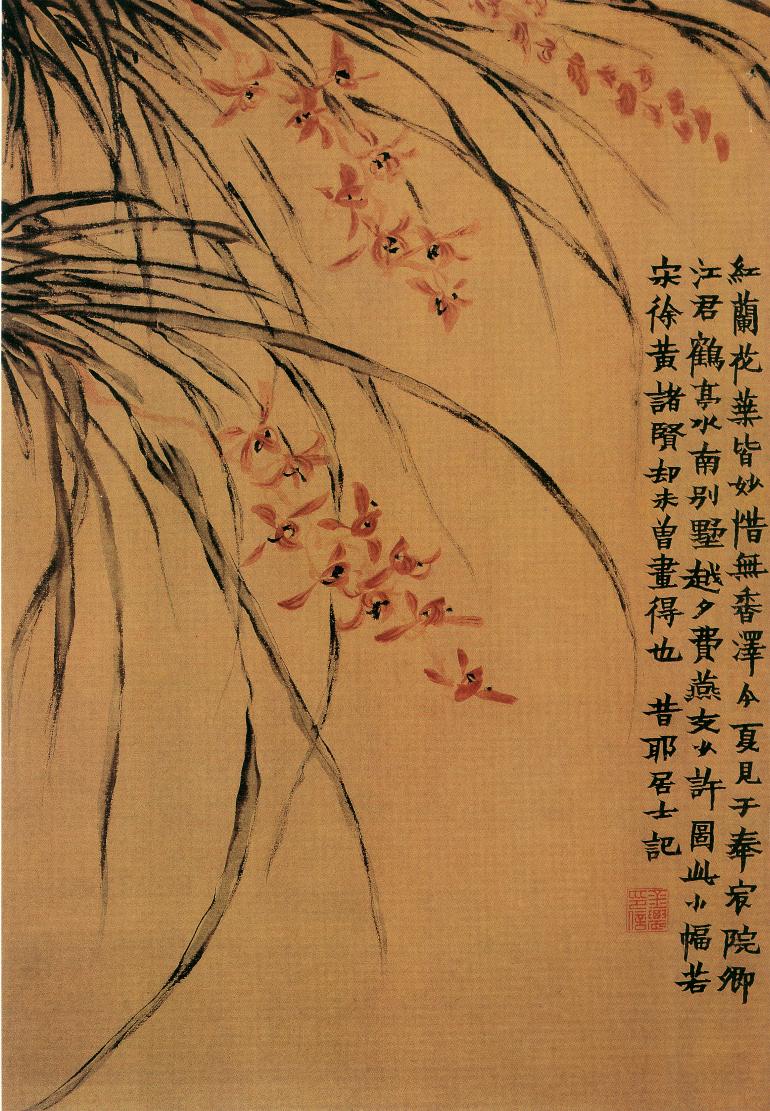 紅蘭花葉皆妙惜無香澤今夏見于奉宸院卿
江君鶴亭水南別墅越夕費燕支少許圖此小幅若
宋徐黃諸賢却未曾畫得也　昔耶居士記
金農
印信